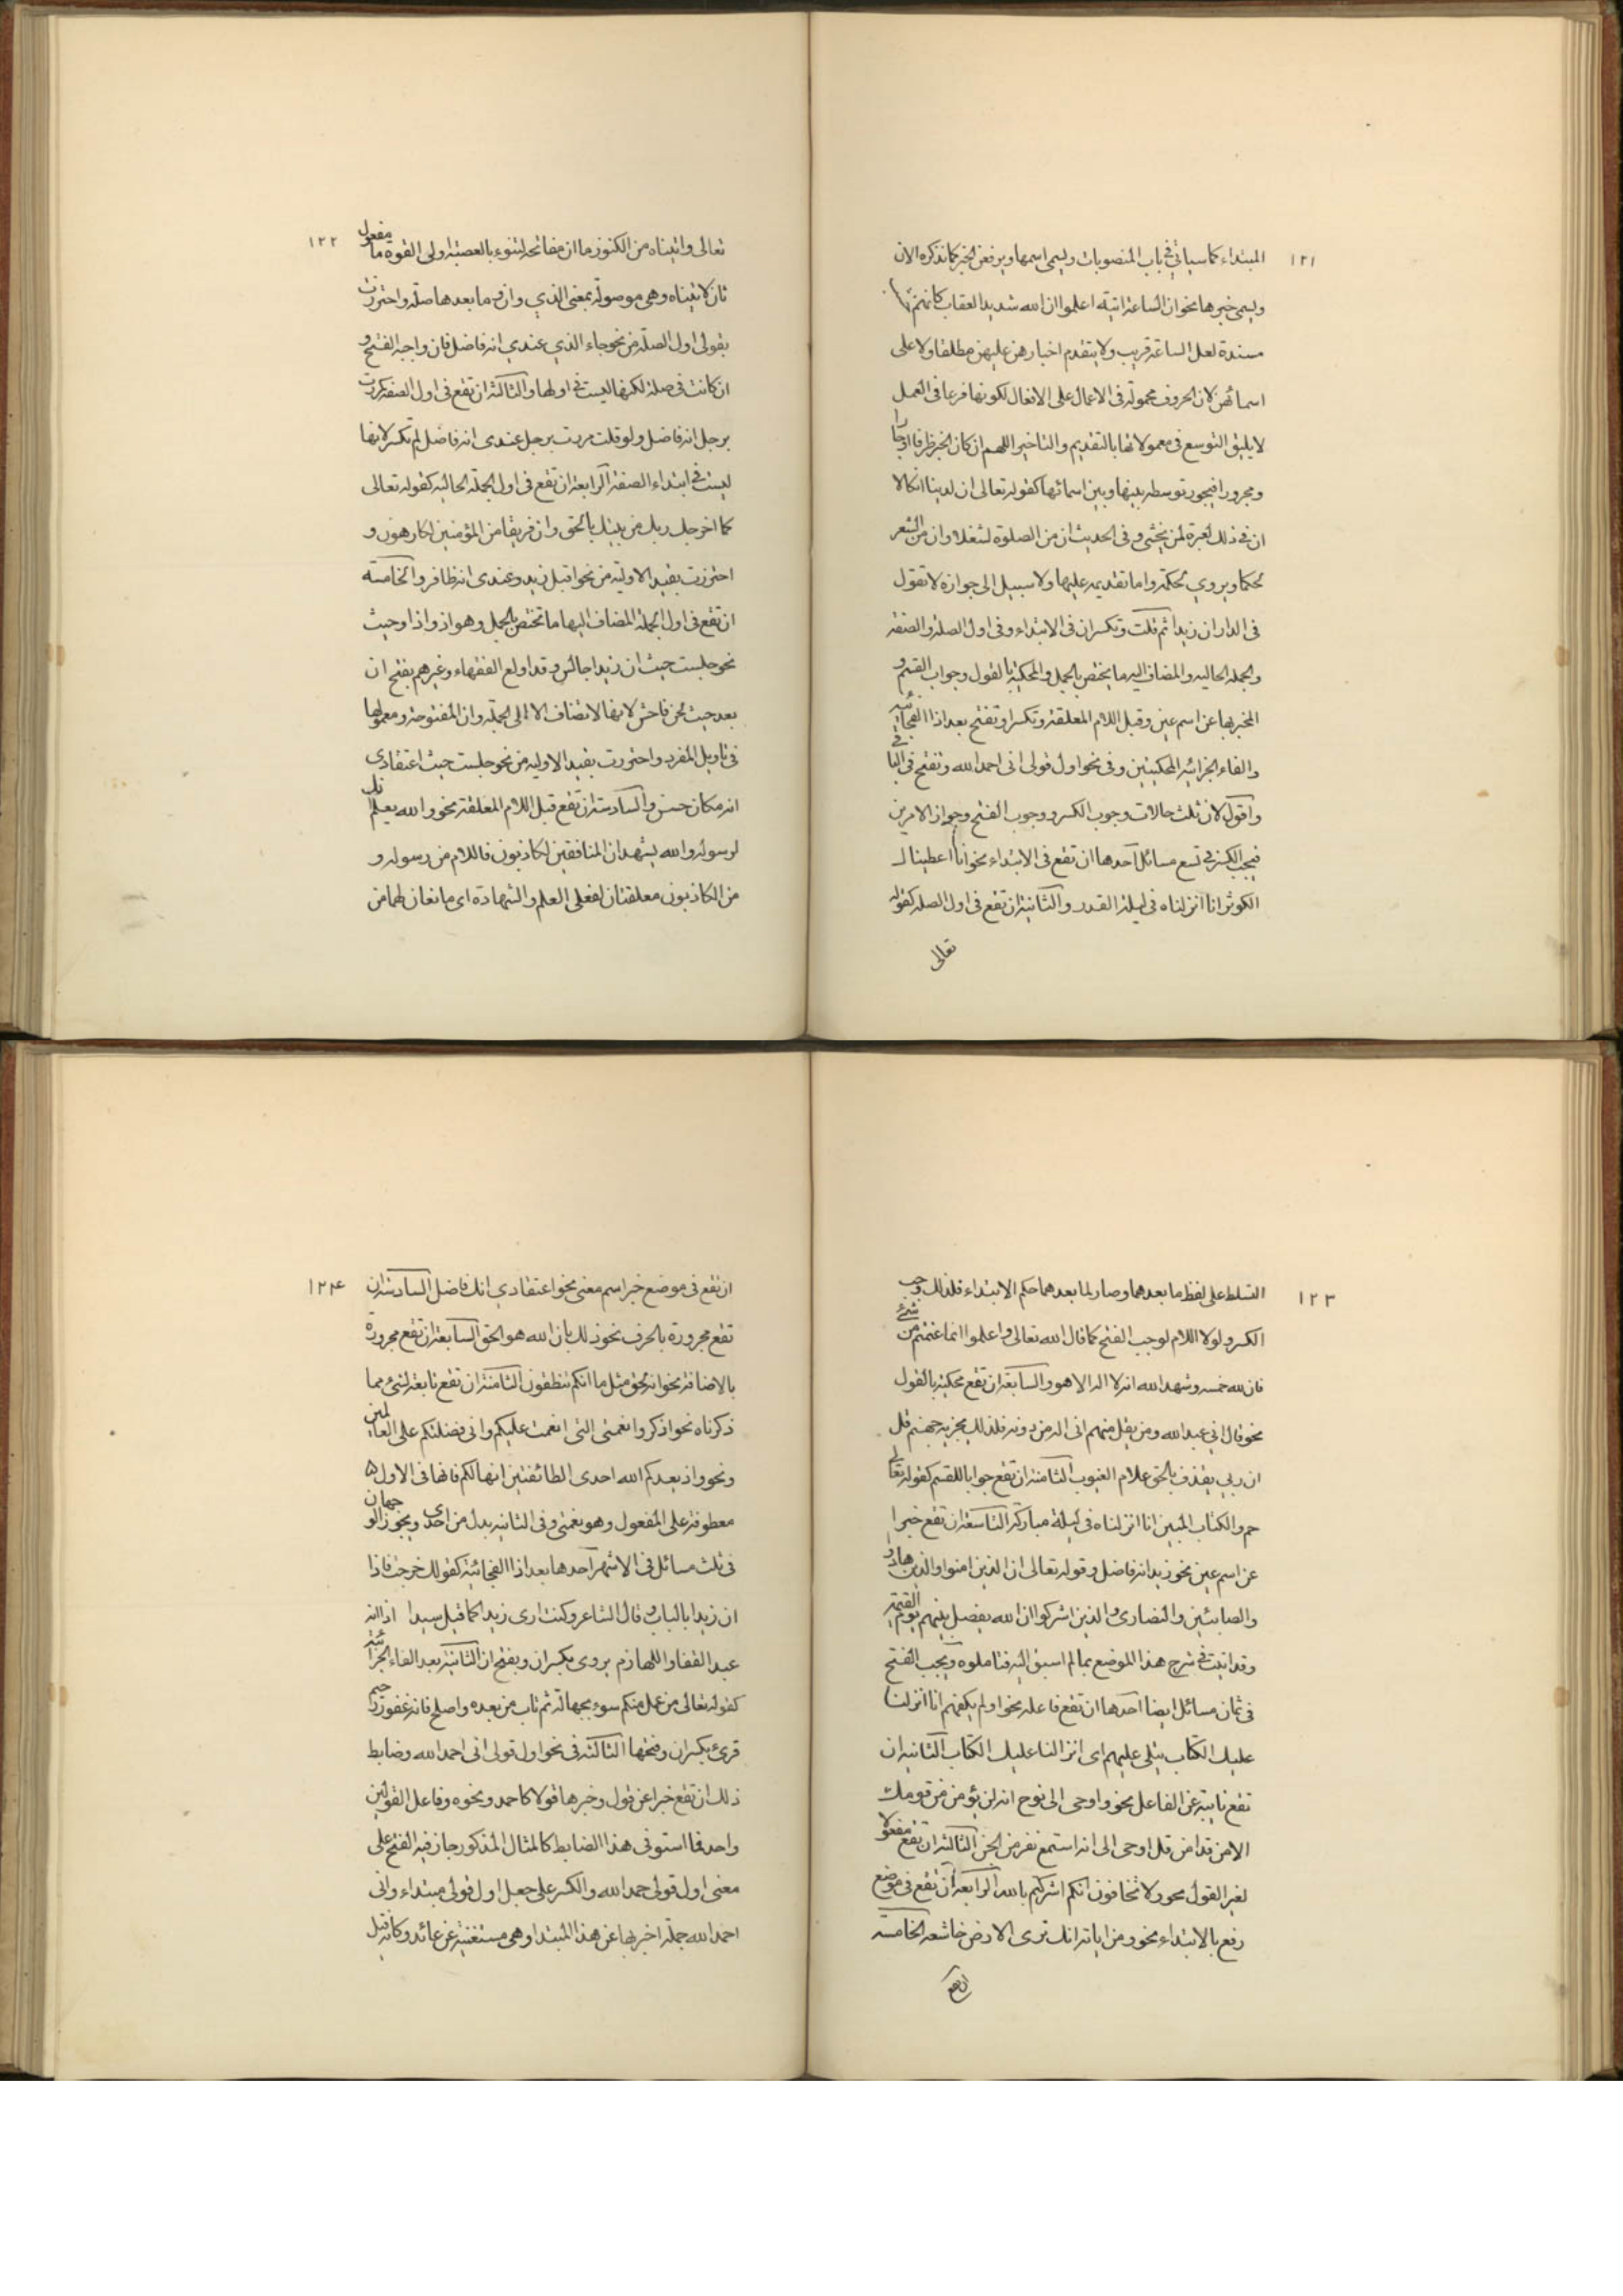 ١٢١
المبتداء كما سياتي في باب المنصوبات ويسمى اسمها ويرفعن الخبر كما نذكره الان
ويسمى خبرها نحو ان الساعة اتية اعلموا ان الله شديد العقاب كانهم
مسندة لعل الساعة قريب ولا يتقدم اخبارهن عليهن مطلقا ولا على
اسمائهن لان الحروف محمولة فى الاعمال على الافعال لكونها فرعا فى العمل
لا يليق التوسع فى معمولاتها بالتقديم والتاخير اللهم ان كان الخبر ظرفا او جارا
ومجرورا فيجوز توسطه بينها وبين اسمائها كقوله تعالى ان لدينا انكالا
ان في ذلك لعبرة لمن يخشى و فى الحديث ان من الصلوة لشغلا و ان من الشعر
لحكما ويروي لحكمة واما تقديمه عليها ولا سبيل الى جوازه لا تقول
فى الدار ان زيدا ثم قلت وتكسر ان فى الابتداء وفى اول الصلة والصفة
والجملة الحاليه والمضاف اليه ما يختص بالجمل والمحكية بالقول وجواب القسم و
المخبر بها عن اسم عين وقبل اللام المعلقة وتكسر او تفتح بعد اذا الفجائية
والفاء الجزائيه المحكيتين وفى نحو اول قولى انى احمد الله وتفتح فى الباقي
واقول لان ثلث حالات وجوب الكسر ووجوب الفتح وجواز الامرين
فيجب الكسر في تسع مسائل احدها ان تقع فى الابتداء نحو انا اعطيناك
الكوثر انا انزلناه فى ليلة القدر والثانية ان تقع فى اول الصلة كقوله
تعالى
١٢٢
تعالى واتيناه من الكنوز ما ان مفاتحه لتنوء بالعصبة اولى القوة ما مفعول
ثان لاتيناه وهى موصولة بمعنى الذي وان و ما بعدها صلة واحترزت
بقولى اول الصلة من نحو جاء الذي عندي انه فاضل فان واجبة الفتح و
ان كانت فى صلة لكنها ليست في اولها والثالثة ان تقع فى اول الصفة كمررت
برجل انه فاضل ولو قلت مررت برجل عندى انه فاضل لم تكسر لانها
ليست في ابتداء الصفة الرابعة ان تقع فى اول الجملة الحالية كقوله تعالى
كما اخرجك ربك من بيتك بالحق وان فريقا من المؤمنين لكارهون و
احترزت بقيد الاولية من نحو اقبل زيد وعندى انه ظافر والخامسة
ان تقع فى اول الجملة المضاف اليها ما تختص بالجمل وهو اذ واذا وحيث
نحو جلست حيث ان زيدا جالس و قد اولع الفقهاء وغيرهم بفتح ان
بعد حيث لحن فاحش لانها لا تضاف الا الى الجملة وان المفتوحة ومعمولها
فى تاويل المفرد واحترزت بقيد الاولية من نحو جلست حيث اعتقادى
انه مكان حسن والسادسة ان تقع قبل اللام المعلقة نحو والله يعلم انك
لرسوله والله يشهد ان المنافقين لكاذبون فاللام من رسوله و
من الكاذبون معلقتان لفعلى العلم والشهادة اى مانعان لهما من
١٢٣
التسلط على لفظ ما بعدهما وصار لما بعدهما حكم الابتداء فلذلك وجب
الكسر ولولا اللام لوجب الفتح كما قال الله تعالى واعلموا انما غنمتم من شيء
فان لله خمسه وشهد الله انه لا اله الا هو والسابعة ان تقع محكية بالقول
نحو قال اني عبد الله ومن يقل منهم انى اله من دونه فلذلك نجزيه جهنم قل
ان ربي يقذف بالحق علام الغيوب الثامنة ان تقع جوابا للقسم كقوله تعالى
حم والكتاب المبين انا انزلناه فى ليلة مباركة التاسعة ان تقع خبرا
عن اسم عين نحو زيد انه فاضل وقوله تعالى ان الذين امنوا والذين هادوا
والصابئين والنصارى والذين اشركوا ان الله يفصل بينهم يوم القيمة
وقد اتيت في شرح هذا الموضع بما لم اسبق اليه فتاملوه ويجب الفتح
فى ثمان مسائل ايضا احدها ان تقع فاعلة نحو اولم يكفهم انا انزلنا
عليك الكتاب يتلى عليهم اى انزالنا عليك الكتاب الثانية ان
تقع نايبة عن الفاعل نحو واوحى الى نوح انه لن يؤمن من قومك
الا من قد امن قل اوحى الى انه استمع نفر من الجن الثالثة ان تقع مفعولا
لغير القول نحو ولا تخافون انكم اشركتم بالله الرابعة ان تقع فى موضع
رفع بالابتداء نحو ومن اياته انك ترى الارض خاشعة الخامسة
ان تقع
١٢٤
ان تقع فى موضع خبر اسم معنى نحو اعتقادي انك فاضل السادسة ان
تقع مجرورة بالحرف نحو ذلك بان الله هو الحق السابعة ان تقع مجرورة
بالاضافة نحو انه لحق مثل ما انكم تنطقون الثامنة ان تقع تابعة لشئ مما
ذكرناه نحو اذكروا نعمتى التى انعمت عليكم وانى فضلتكم على العالمين
ونحو واذ يعدكم الله احدى الطائفتين انها لكم فانها فى الاولى
معطوفة على المفعول وهو نعمتى وفى الثانية بدل من احدى ويجوز الوجهان
فى ثلث مسائل فى الاشهر احدها بعد اذا الفجائية كقولك خرجت فاذا
ان زيدا بالباب و قال الشاعر وكنت ارى زيدا كما قيل سيدا اذا انه
عبد القفا واللهازم يروى بكسر ان وبفتح ان الثانية بعد الفاء الجزائية
كقوله تعالى من عمل منكم سوء بجهالة ثم تاب من بعده واصلح فانه غفور رحيم
قرئ بكسر ان وفتحها الثالثة فى نحو اول قولى انى احمد الله وضابط
ذلك ان تقع خبرا عن قول وخبرها قولا كاحمد ونحوه وفاعل القولين
واحد فما استوفى هذا الضابط كالمثال المذكور جاز فيه الفتح على
معنى اول قولى حمد الله والكسر على جعل اول قولى مبتداء وانى
احمد الله جملة اخبر بها عن هذا المبتدا وهى مستغنية عن عائد وكانه قيل